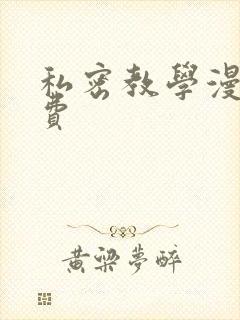 私密教學漫
費
黃梁夢醉